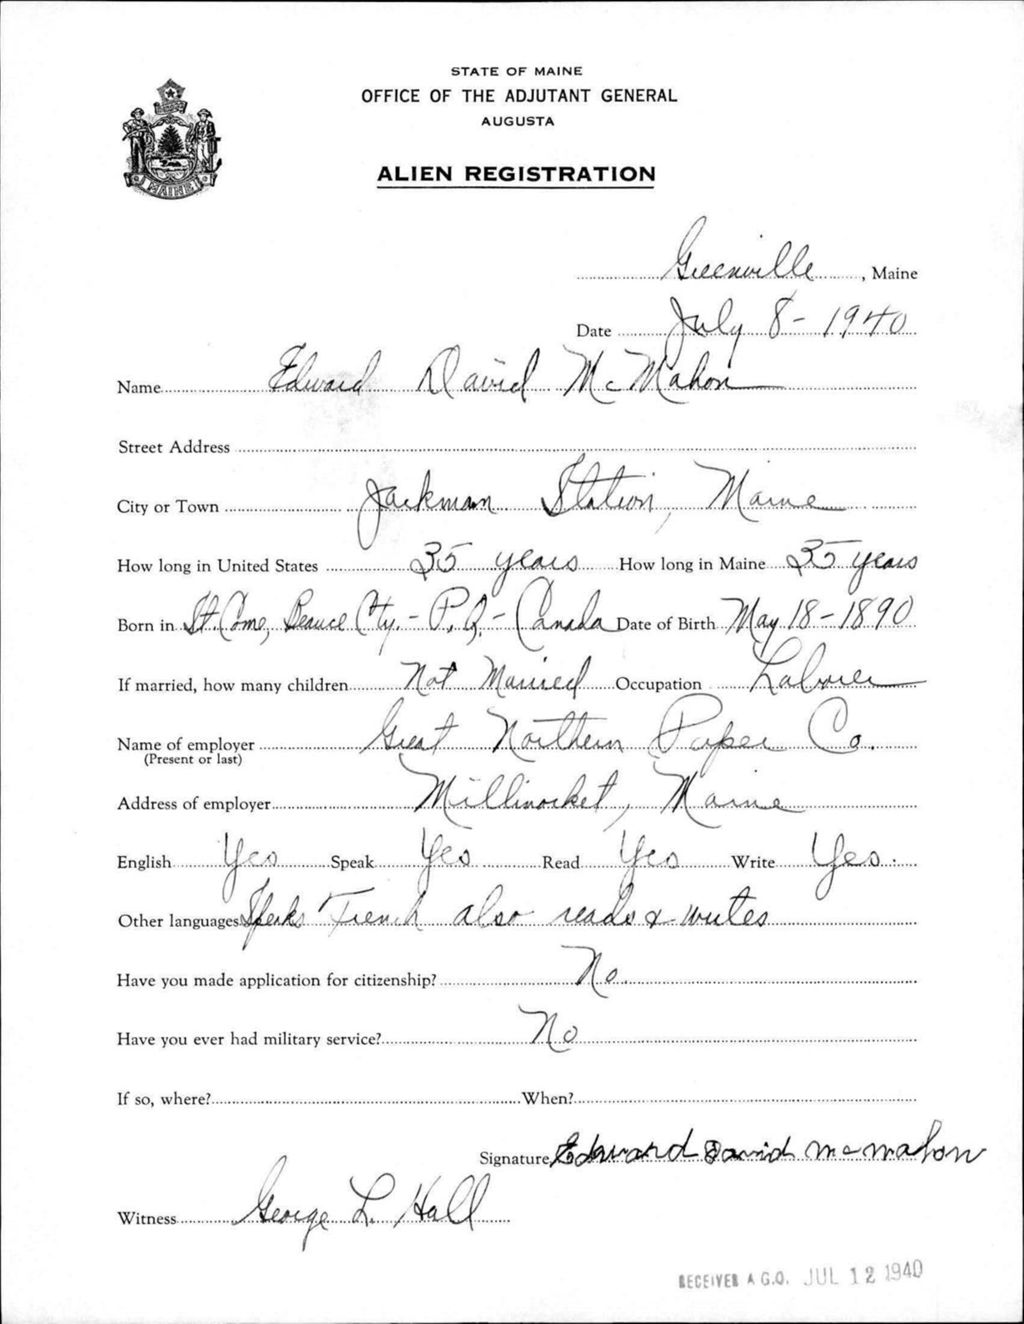 STATE OF MAINE
OFFICE OF THE ADJUTANT GENERAL
AUGUSTA
ALIEN REGISTRATION
MAINE
Greenville, Maine
Date July 8 - 1940
Name Edward David McMahon
Street Address
City or Town Jackman Station, Maine
How long in United States 35 years How long in Maine 35 years
Born in St. Come, Beauce Cty. - P.Q. - Canada Date of Birth May 18 - 1890
If married, how many children Not Married Occupation Laborer
Name of employer Great Northern Paper Co.
(Present or last)
Address of employer Millinocket, Maine
English Yes Speak Yes Read Yes Write Yes.
Other languages Speaks French also reads & writes
Have you made application for citizenship? No.
Have you ever had military service? No
If so, where? When?
Signature Edward David McMahon
Witness George L. Hall
RECEIVED A.G.O. JUL 12 1940